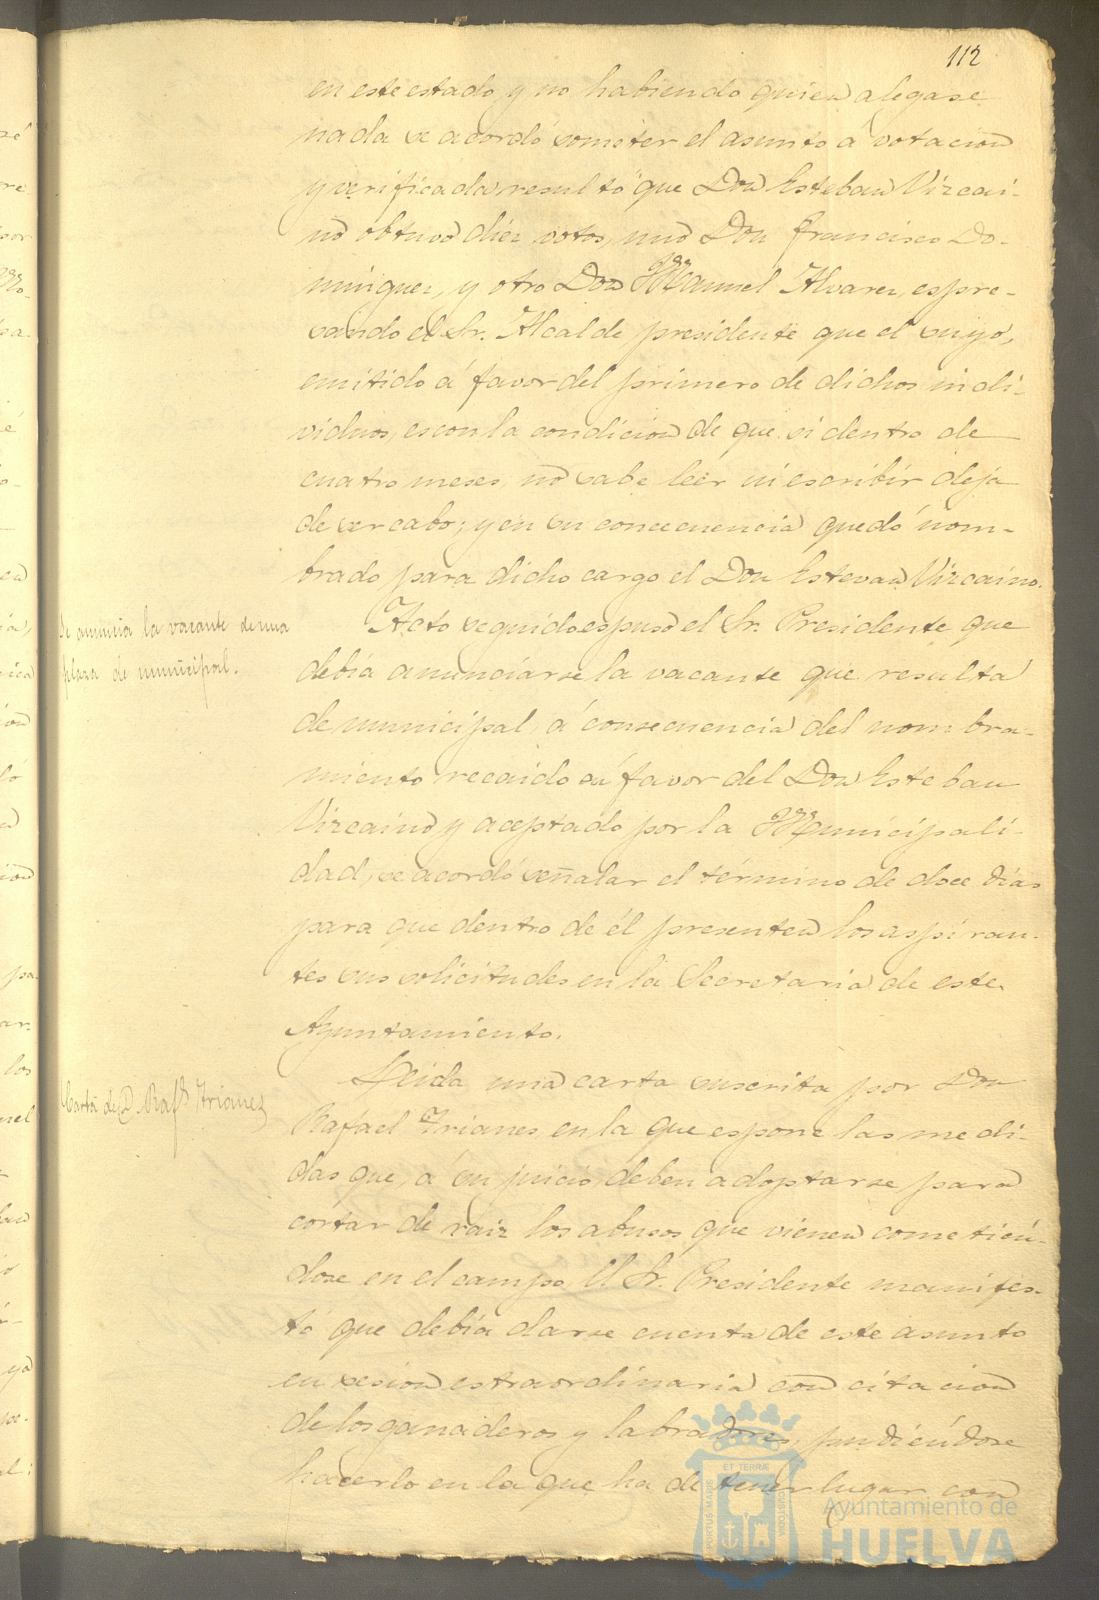 112
en este estado, y no habiendo quien alegase
nada se acordó someter el asunto á votacion
y verificada, resultó que Don Esteban Vizcai-
no obtuvo diez votos, uno Don Francisco Do-
minguez, y otro Don Manuel Alvarez, espre-
sando el Sr. Alcalde presidente que el suyo,
emitido á favor del primero de dichos indi-
viduos, es con la condicion de que si dentro de
cuatro meses, no sabe leer ni escribir deja
de ser cabo; y en su consecuencia quedó nom-
brado para dicho cargo el Don Estevan Vizcaino.
Se anuncia la vacante de una
plaza de municipal.
Acto seguido espuso el Sr. Presidente que
debia anunciarse la vacante que resulta
de municipal, á consecuencia del nombra-
miento recaido á favor del Don Esteban
Vizcaino y aceptado por la Municipali-
dad, se acordó señalar el término de doce dias
para que dentro de él presenten los aspiran-
tes sus solicitudes en la Secretaria de este
Ayuntamiento.
Carta de D. Raf.l Trianes
Leida una carta suscrita por Don
Rafael Trianes, en la que espone las medi-
das que, á su juicio, deben adoptarse para
cortar de raiz los abusos que vienen cometién-
dose en el campo, el Sr. Presidente manifes-
tó que debia darse cuenta de este asunto
en sesion estraordinaria con citacion
de los ganaderos y labradores, pudiéndose
hacerlo en la que ha de tener lugar con
ET TERRÆ
PORTUS MARIS
CUSTODIA
Ayuntamiento de
HUELVA